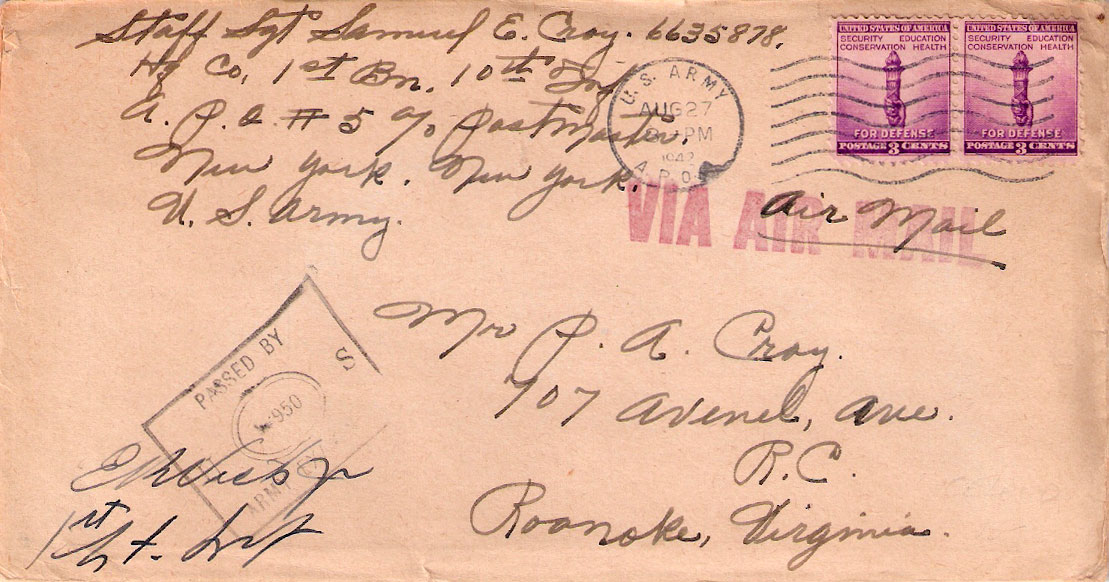 Staff Sgt Samuel E. Croy. 6635878.
Hq Co, 1st Bn. 10th Inf
A. P. O #5 c/o PostMaster.
New York. New York.
U. S. Army.
U.S. ARMY
AUG 27
PM
1942
A.P.O.
UNITED STATES OF AMERICA
SECURITY EDUCATION
CONSERVATION HEALTH
FOR DEFENSE
POSTAGE 3 CENTS
UNITED STATES OF AMERICA
SECURITY EDUCATION
CONSERVATION HEALTH
FOR DEFENSE
POSTAGE 3 CENTS
VIA AIR MAIL
Air Mail
Mr P. A. Croy.
707 Avenel, Ave.
R.C.
Roanoke, Virginia.
PASSED BY
S
ARMY
1st Lt. Inf